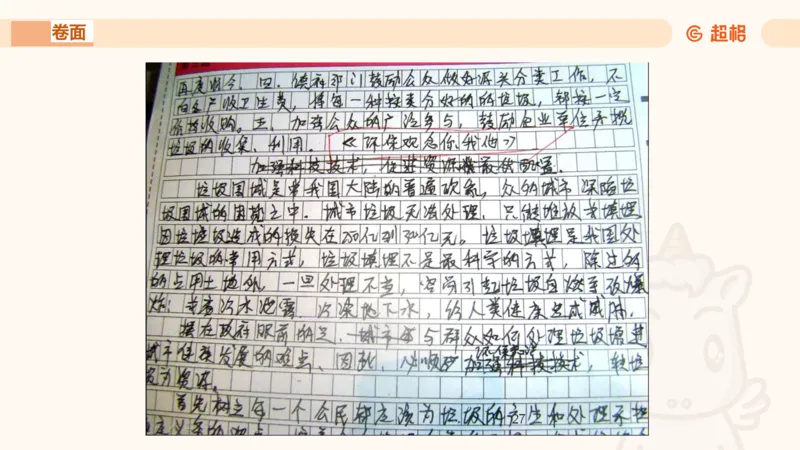 卷面
超格
再度测今、四、使社部门鼓励公众做好源头分类工作，不
向生产收卫生费，将每一种按类分好的的垃圾，都按一定
价格收购。五、加强公众的广泛参与，鼓励企业单位
垃圾的收集、利用。《环保观念你我他》
加强科技技术，促进资源最优配置。
垃圾围城是我国大陆的普遍现象，众多城市深陷垃
圾围城的困境之中。城市垃圾无法处理，只能堆放或填埋
因垃圾造成的损失在250亿到300亿元。垃圾填埋是我国处
理垃圾的常用方式，垃圾填埋不是最科学的方式，除过的
的占用土地外，一旦处理不当，容易引起垃圾自燃至改爆
炸；或者污水泄露、污染地下水，给人类健康造成威胁。
摆在政府眼前的是，城市与群众如何处理垃圾
城市发展的难点、因此，必须加强科技技术，转垃
圾为资源。
首先树立每一个公民都应该为垃圾的产生和处理不担